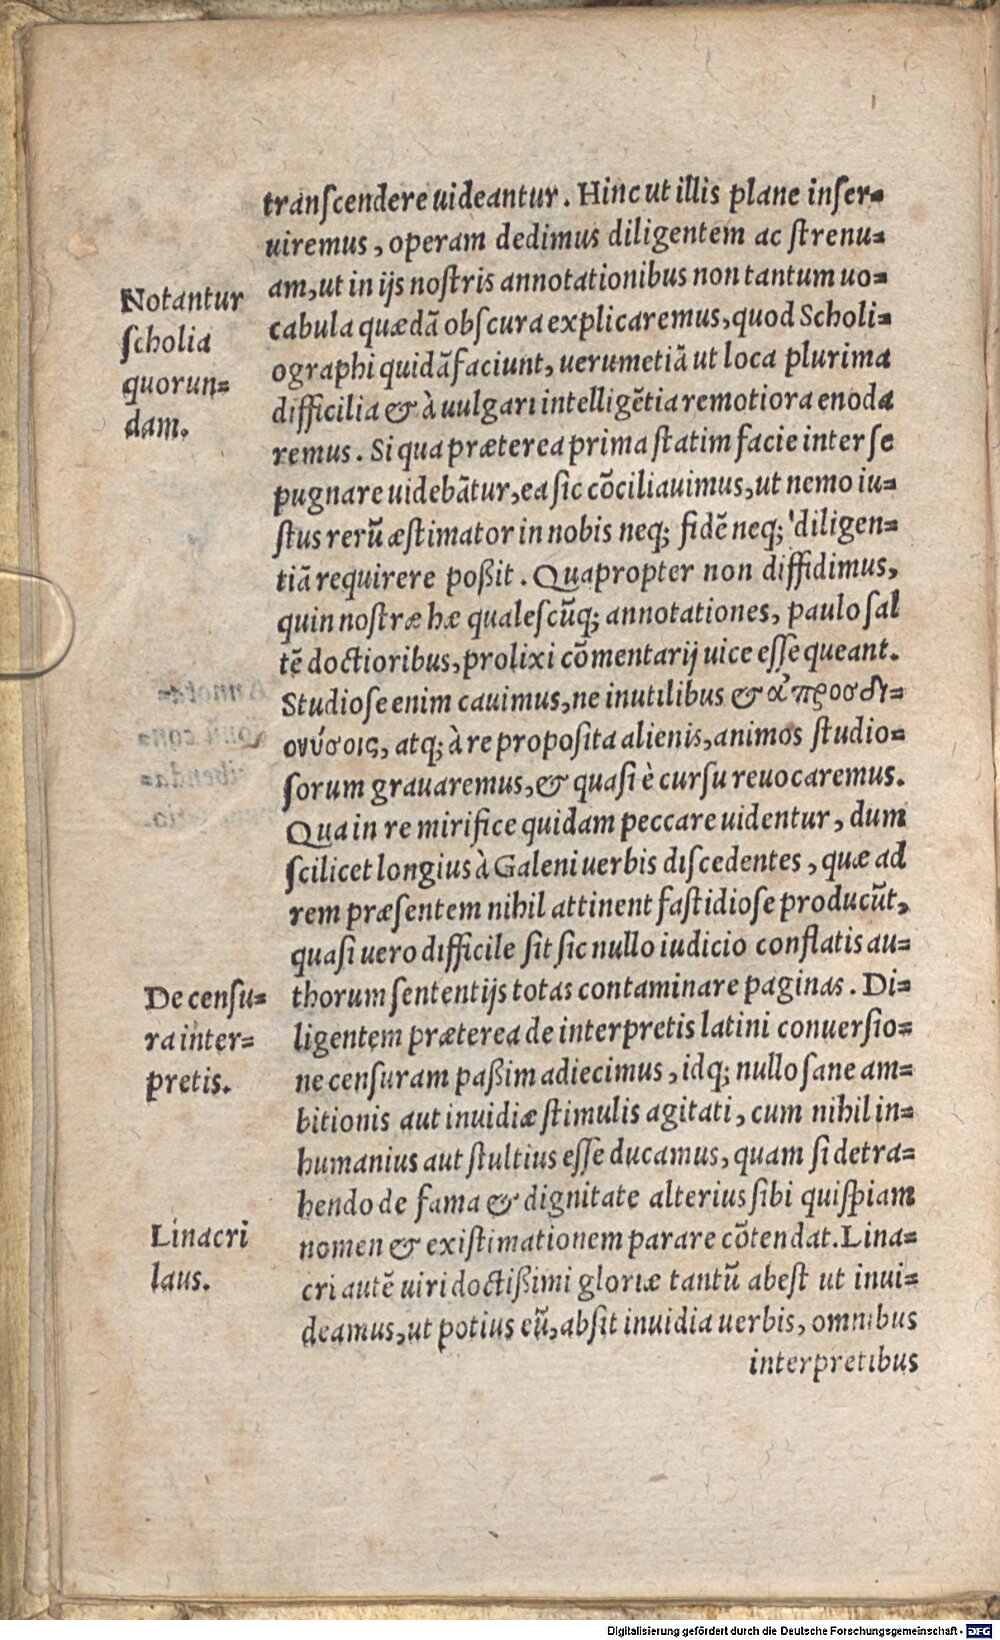 transcendere uideantur. Hinc ut illis plane inser=
uiremus, operam dedimus diligentem ac strenu=
am, ut in ijs nostris annotationibus non tantum uo=
cabula quædã obscura explicaremus, quod Scholi=
ographi quidã faciunt, uerumetiã ut loca plurima
difficilia & à uulgari intelligẽtia remotiora enoda
remus. Si qua præterea prima statim facie inter se
pugnare uidebãtur, ea sic cõciliauimus, ut nemo iu=
stus rerũ æstimator in nobis neq; fidẽ neq; diligen=
tiã requirere poßit. Quapropter non diffidimus,
quin nostræ hæ qualescũq; annotationes, paulo sal
tẽ doctioribus, prolixi cõmentarij uice esse queant.
Studiose enim cauimus, ne inutilibus & ἀπροσδι=
ονύσοις, atq; à re proposita alienis, animos studio=
sorum grauaremus, & quasi è cursu reuocaremus.
Qua in re mirifice quidam peccare uidentur, dum
scilicet longius à Galeni uerbis discedentes, quæ ad
rem præsentem nihil attinent fastidiose producũt,
quasi uero difficile sit sic nullo iudicio conflatis au=
thorum sententijs totas contaminare paginas. Di=
ligentem præterea de interpretis latini conuersio=
ne censuram paßim adiecimus, idq; nullo sane am=
bitionis aut inuidiæ stimulis agitati, cum nihil in=
humanius aut stultius esse ducamus, quam si detra=
hendo de fama & dignitate alterius sibi quispiam
nomen & existimationem parare cõtendat. Lina=
cri autẽ uiri doctißimi gloriæ tantũ abest ut inui=
deamus, ut potius eũ, absit inuidia uerbis, omnibus
interpretibus
Notantur
scholia
quorun=
dam.
De censu=
ra inter=
pretis.
Linacri
laus.
Digitalisierung gefördert durch die Deutsche Forschungsgemeinschaft - DFG